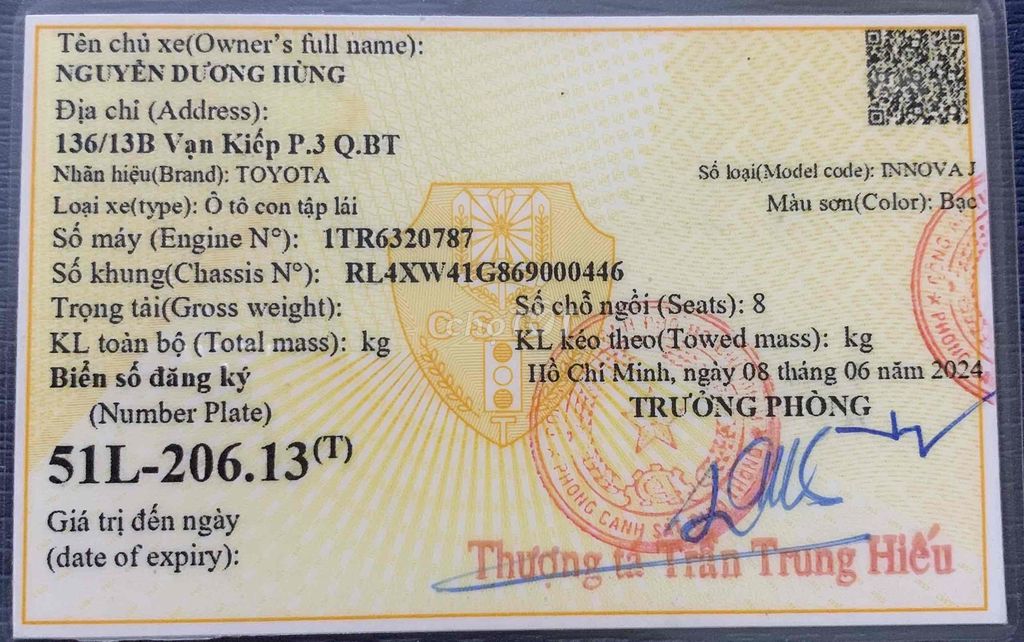 Tên chủ xe(Owner's full name):
NGUYỄN DƯƠNG HÙNG
Địa chỉ (Address):
136/13B Vạn Kiếp P.3 Q.BT
Nhãn hiệu(Brand): TOYOTA
Số loại(Model code): INNOVA J
Loại xe(type): Ô tô con tập lái
Màu sơn(Color): Bạc
Số máy (Engine N°): 1TR6320787
Số khung(Chassis N°): RL4XW41G869000446
Trọng tải(Gross weight):
Số chỗ ngồi (Seats): 8
KL toàn bộ (Total mass): kg
KL kéo theo(Towed mass): kg
Biển số đăng ký
Hồ Chí Minh, ngày 08 tháng 06 năm 2024
(Number Plate)
TRƯỞNG PHÒNG
51L-206.13(T)
Giá trị đến ngày
(date of expiry):
PHÒNG CẢNH
Thượng tá Trần Trung Hiếu